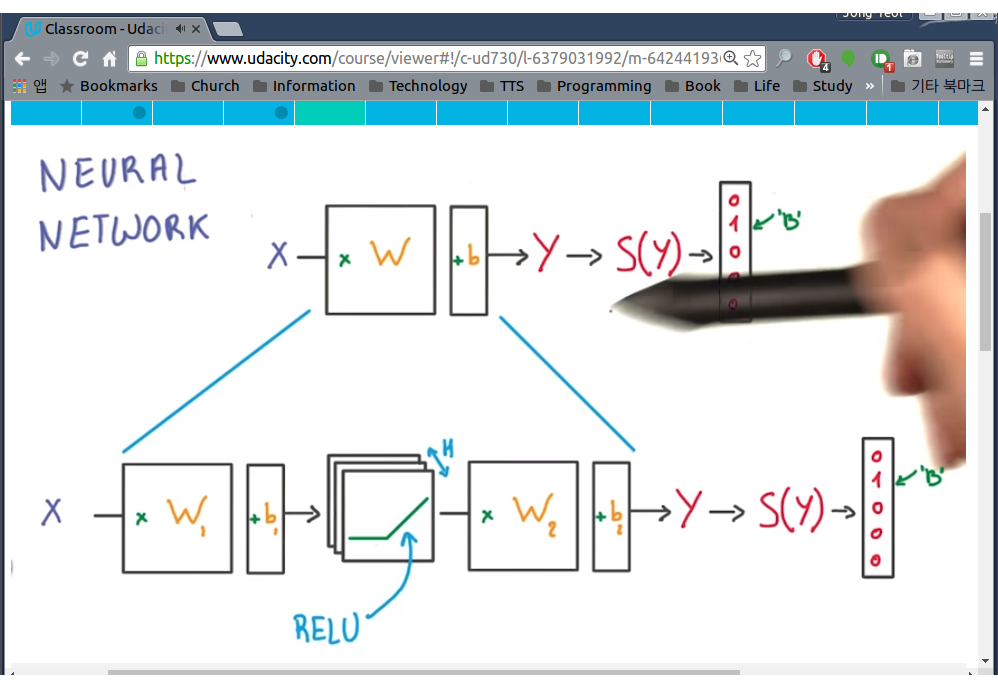 Jong Yeol
Classroom - Udaci
https://www.udacity.com/course/viewer#!/c-ud730/l-6379031992/m-64244193
4
1
앱 Bookmarks Church Information Technology TTS Programming Book Life Study » 기타 북마크
NEURAL
NETWORK
X × W + b → Y → S(Y) →
0
1 'B'
0
0
X × W1 + b1 → H × W2 + b2 → Y → S(Y) →
0
1 'B'
0
0
0
RELU